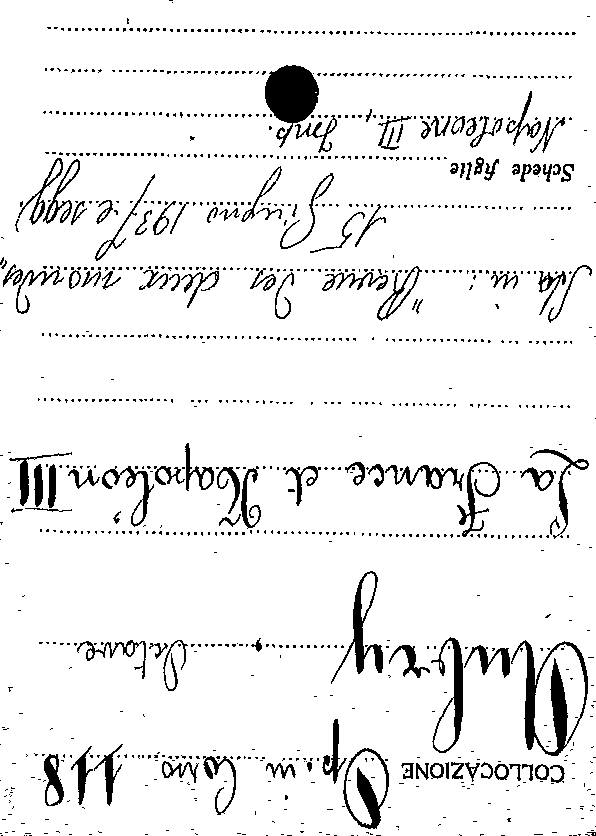 COLLOCAZIONE Op. in Corso 118
Aubry, Octave
La France et Napoléon III
Sta in: "Revue des deux mondes"
15 Giugno 1937 e segg.)
Schede figlie
Napoleone III, Imp.